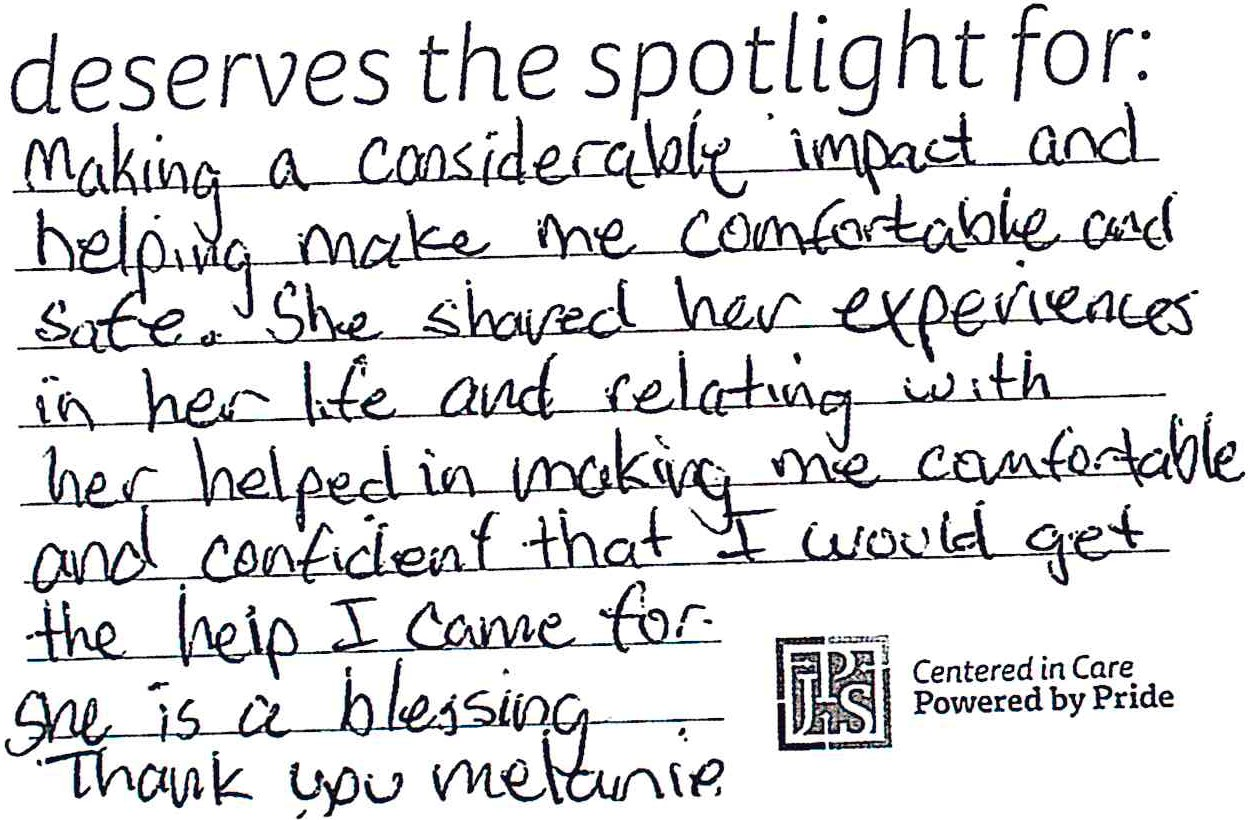 deserves the spotlight for:
Making a considerable impact and
helping make me comfortable and
safe. She shared her experiences
in her life and relating with
her helped in making me comfortable
and confident that I would get
the help I came for.
She is a blessing
Thank you melanie.
JPS
Centered in Care
Powered by Pride